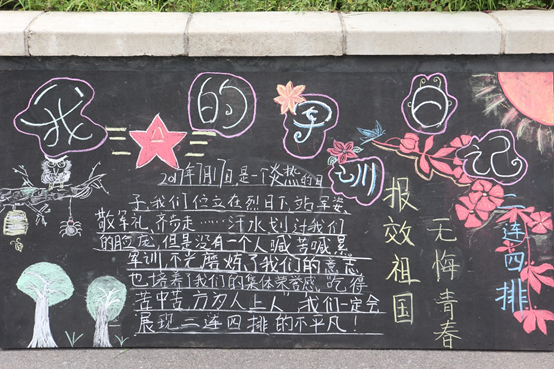 我的军训日记
2017年7月17日,是一个炎热的日
子,我们位立在烈日下,站军姿、
敬军礼、齐步走……汗水划过我们
的脸庞,但是没有一个人喊苦喊累
军训不光磨炼了我们的意志
也培养了我们的集体荣誉感"吃得
苦中苦,方为人上人",我们一定会
展现三连四排的不平凡!
报效祖国
无悔青春
三连四排